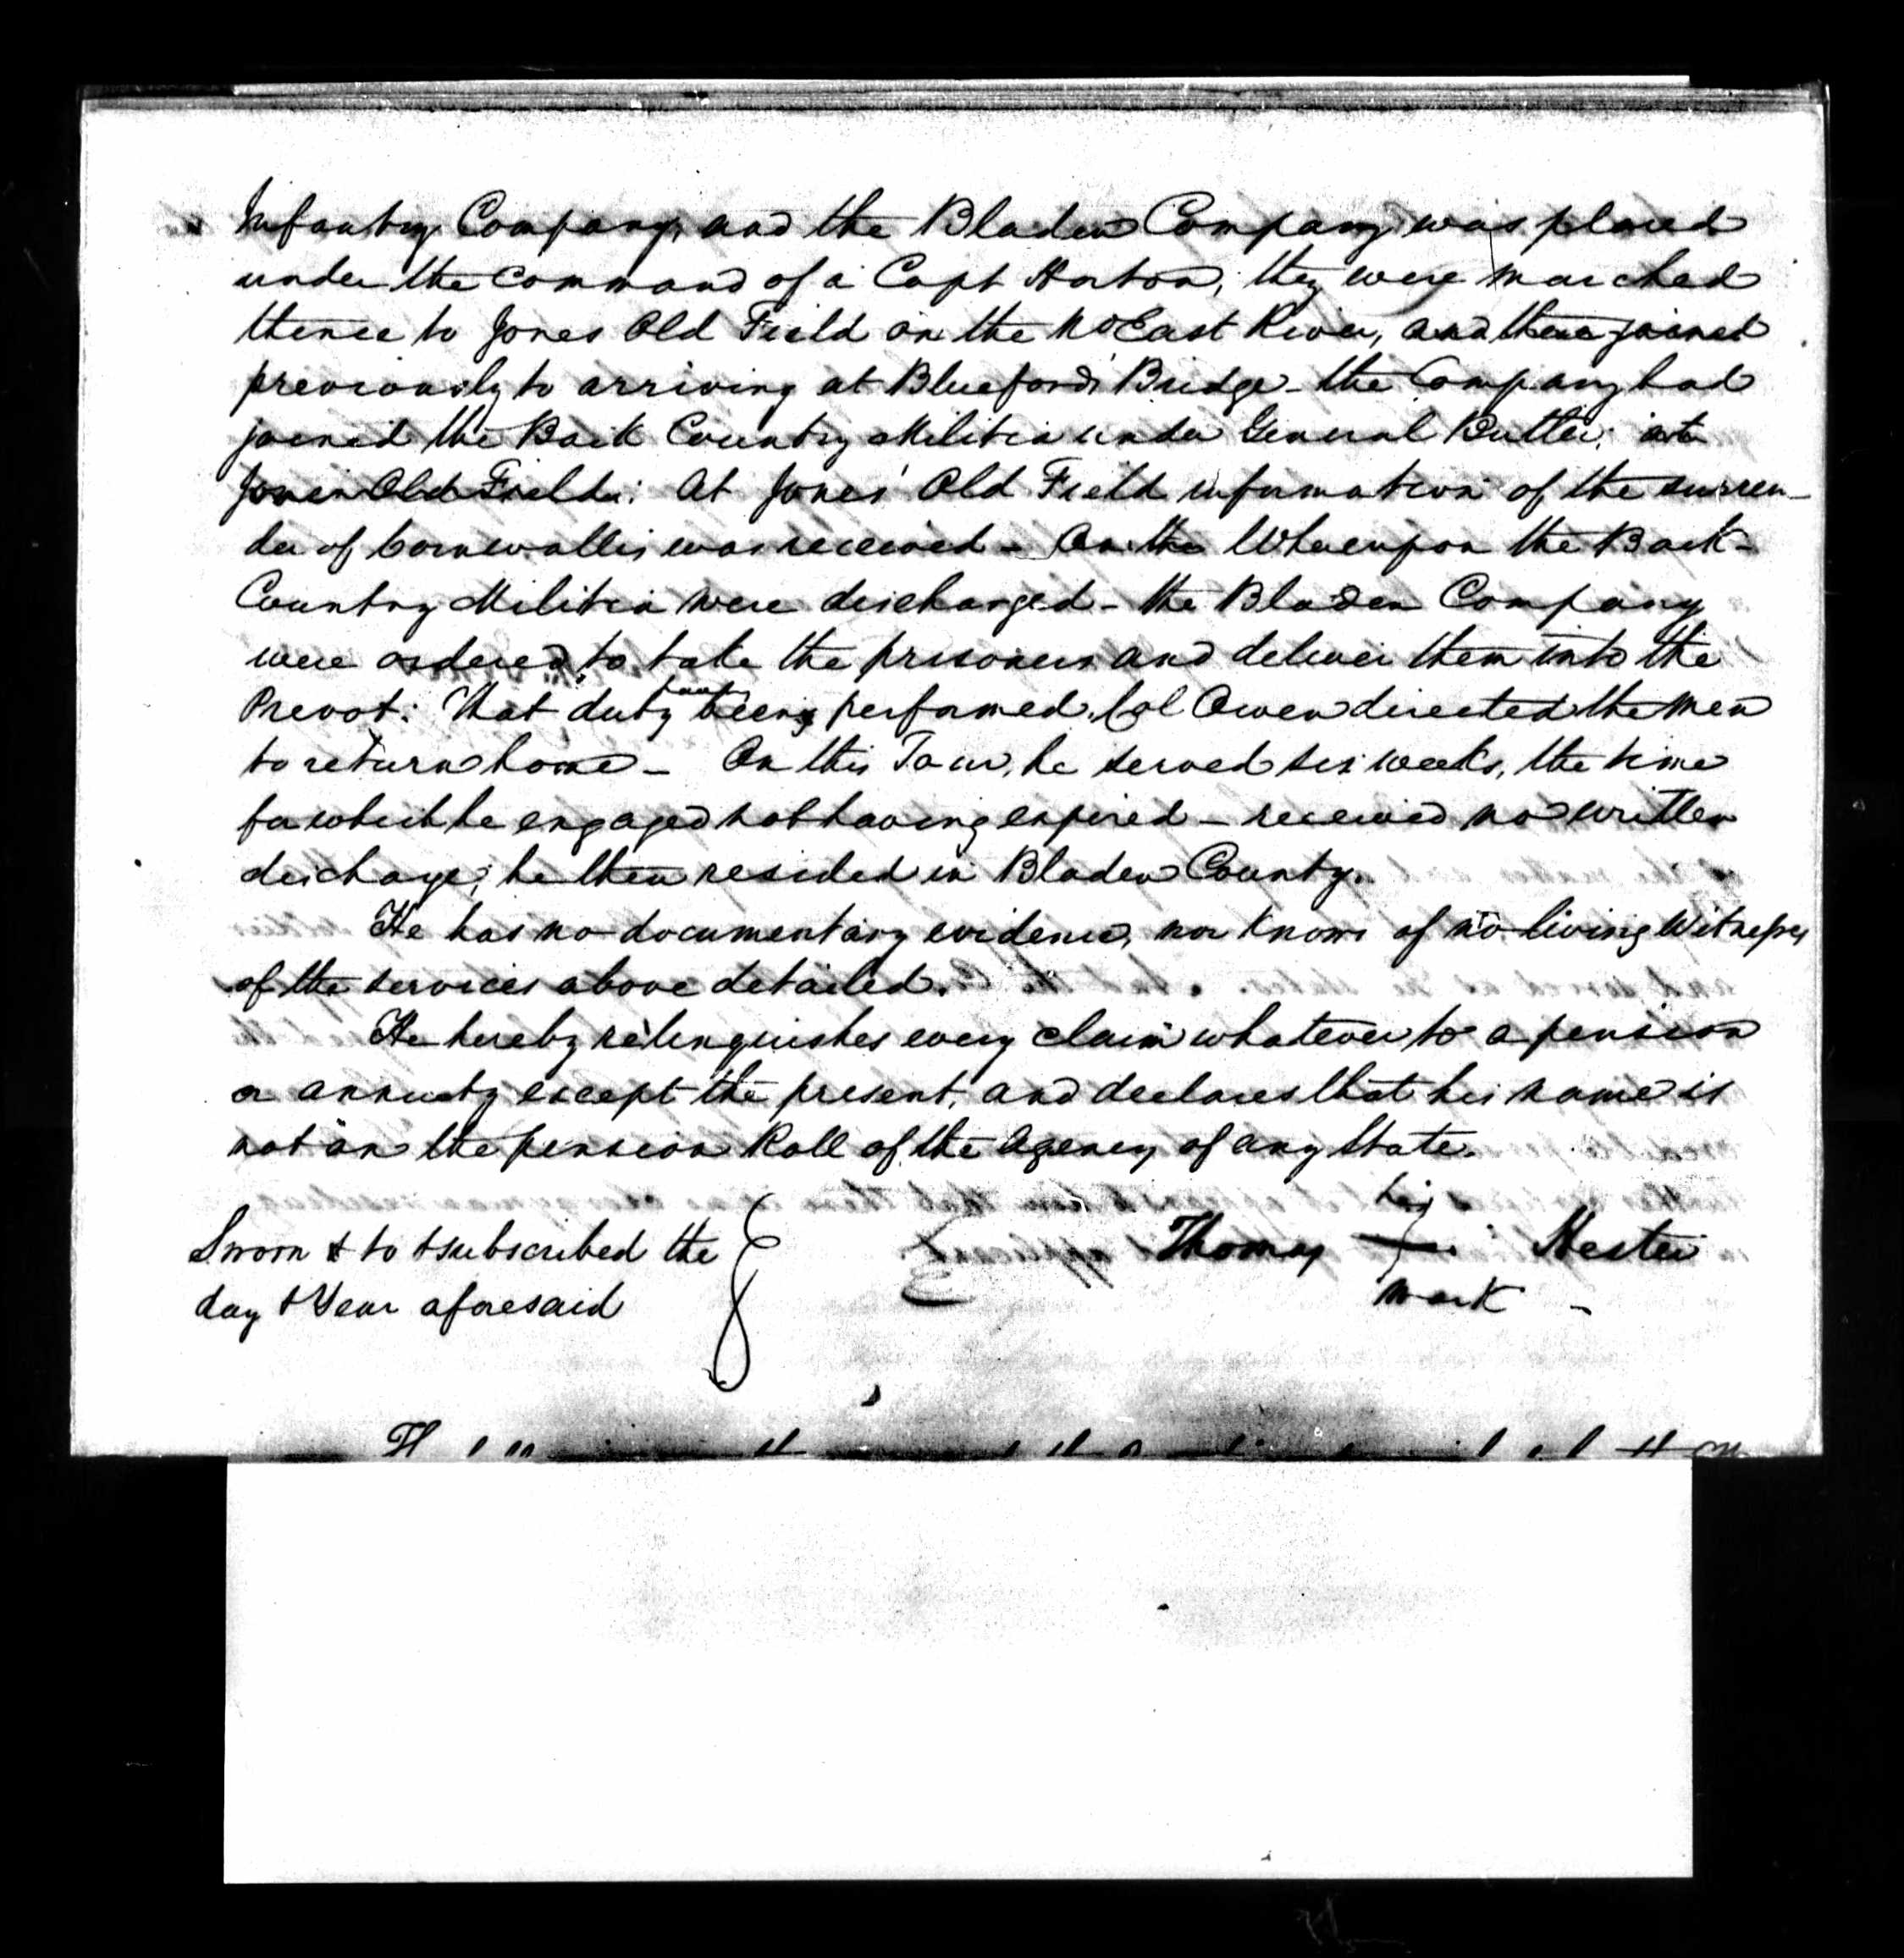 Infantry Company, and the Bladen Company was placed
under the command of a Capt Horton, they were marched
thence to Jones Old Field on the No East River, and there joined
previously to arriving at Blueford's Bridge - the Company had
joined the Back Country Militia under General Butler; at
Jones Old Field: At Jones' Old Field information of the surren-
der of Cornwallis was received - On the Whereupon the Back-
Country Militia were discharged - the Bladen Company
were ordered to take the prisoners and deliver them into the
Prevot: That duty being performed, Col Owen directed the men
to return home - On this Tour, he served six weeks, the time
for which he engaged not having expired - received no written
discharge; he then resided in Bladen County.
He has no documentary evidence, nor knows of no living Witnesses
of the services above detailed.
He hereby relinquishes every claim whatever to a pension
or annuity except the present, and declares that his name is
not on the pension Roll of the Agency of any State.
his
Sworn & to & subscribed the Thomas Hester
day & Year aforesaid mark -